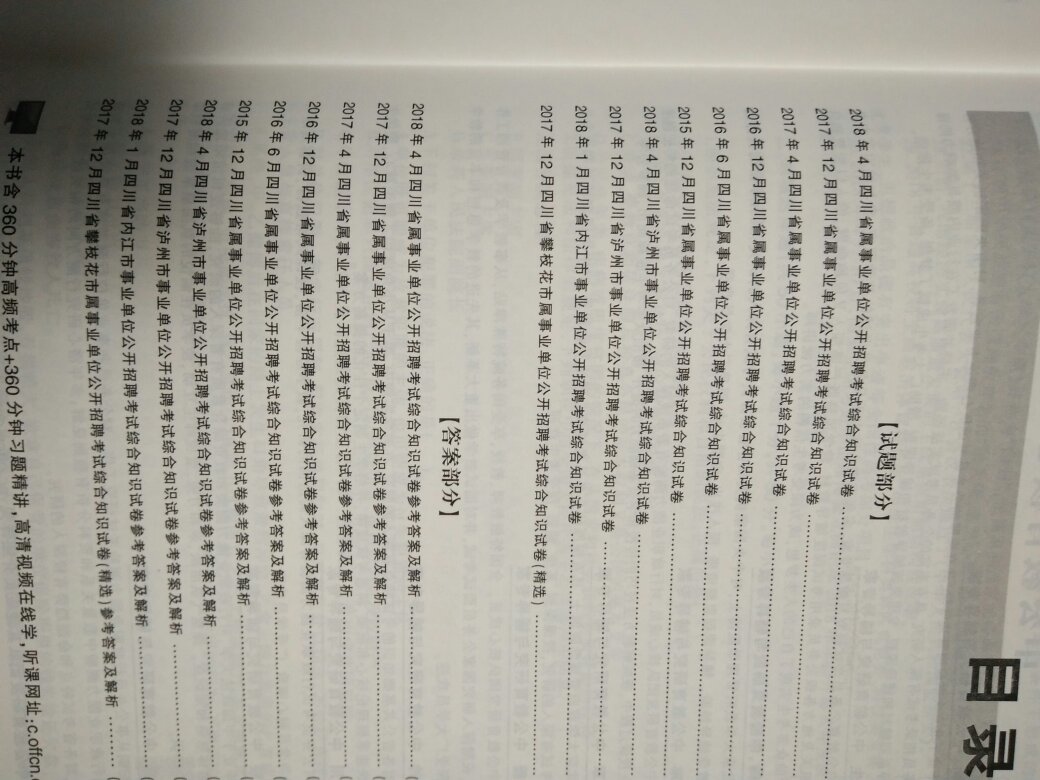 目录
【试题部分】
2018年4月四川省属事业单位公开招聘考试综合知识试卷
2017年12月四川省属事业单位公开招聘考试综合知识试卷
2017年4月四川省属事业单位公开招聘考试综合知识试卷
2016年12月四川省属事业单位公开招聘考试综合知识试卷
2016年6月四川省属事业单位公开招聘考试综合知识试卷
2015年12月四川省属事业单位公开招聘考试综合知识试卷
2018年4月四川省泸州市事业单位公开招聘考试综合知识试卷
2017年12月四川省泸州市事业单位公开招聘考试综合知识试卷
2018年1月四川省内江市事业单位公开招聘考试综合知识试卷
2017年12月四川省攀枝花市属事业单位公开招聘考试综合知识试卷(精选)
【答案部分】
2018年4月四川省属事业单位公开招聘考试综合知识试卷参考答案及解析
2017年12月四川省属事业单位公开招聘考试综合知识试卷参考答案及解析
2017年4月四川省属事业单位公开招聘考试综合知识试卷参考答案及解析
2016年12月四川省属事业单位公开招聘考试综合知识试卷参考答案及解析
2016年6月四川省属事业单位公开招聘考试综合知识试卷参考答案及解析
2015年12月四川省属事业单位公开招聘考试综合知识试卷参考答案及解析
2018年4月四川省泸州市事业单位公开招聘考试综合知识试卷参考答案及解析
2017年12月四川省泸州市事业单位公开招聘考试综合知识试卷参考答案及解析
2018年1月四川省内江市事业单位公开招聘考试综合知识试卷参考答案及解析
2017年12月四川省攀枝花市属事业单位公开招聘考试综合知识试卷(精选)参考答案及解析
本书含360分钟高频考点+360分钟习题精讲,高清视频在线学,听课网址:c.offcn.